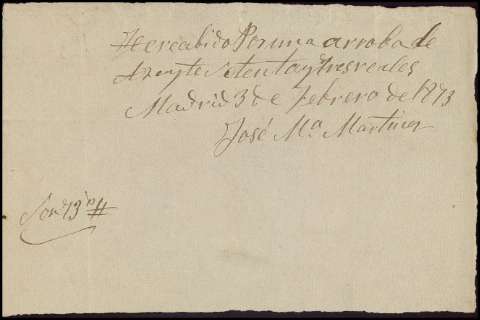 He recibido Por una arroba de
Azeyte Setenta y tres reales
Madrid 3 de febrero de 1873
José Mª Martinez
Son 73 rs #